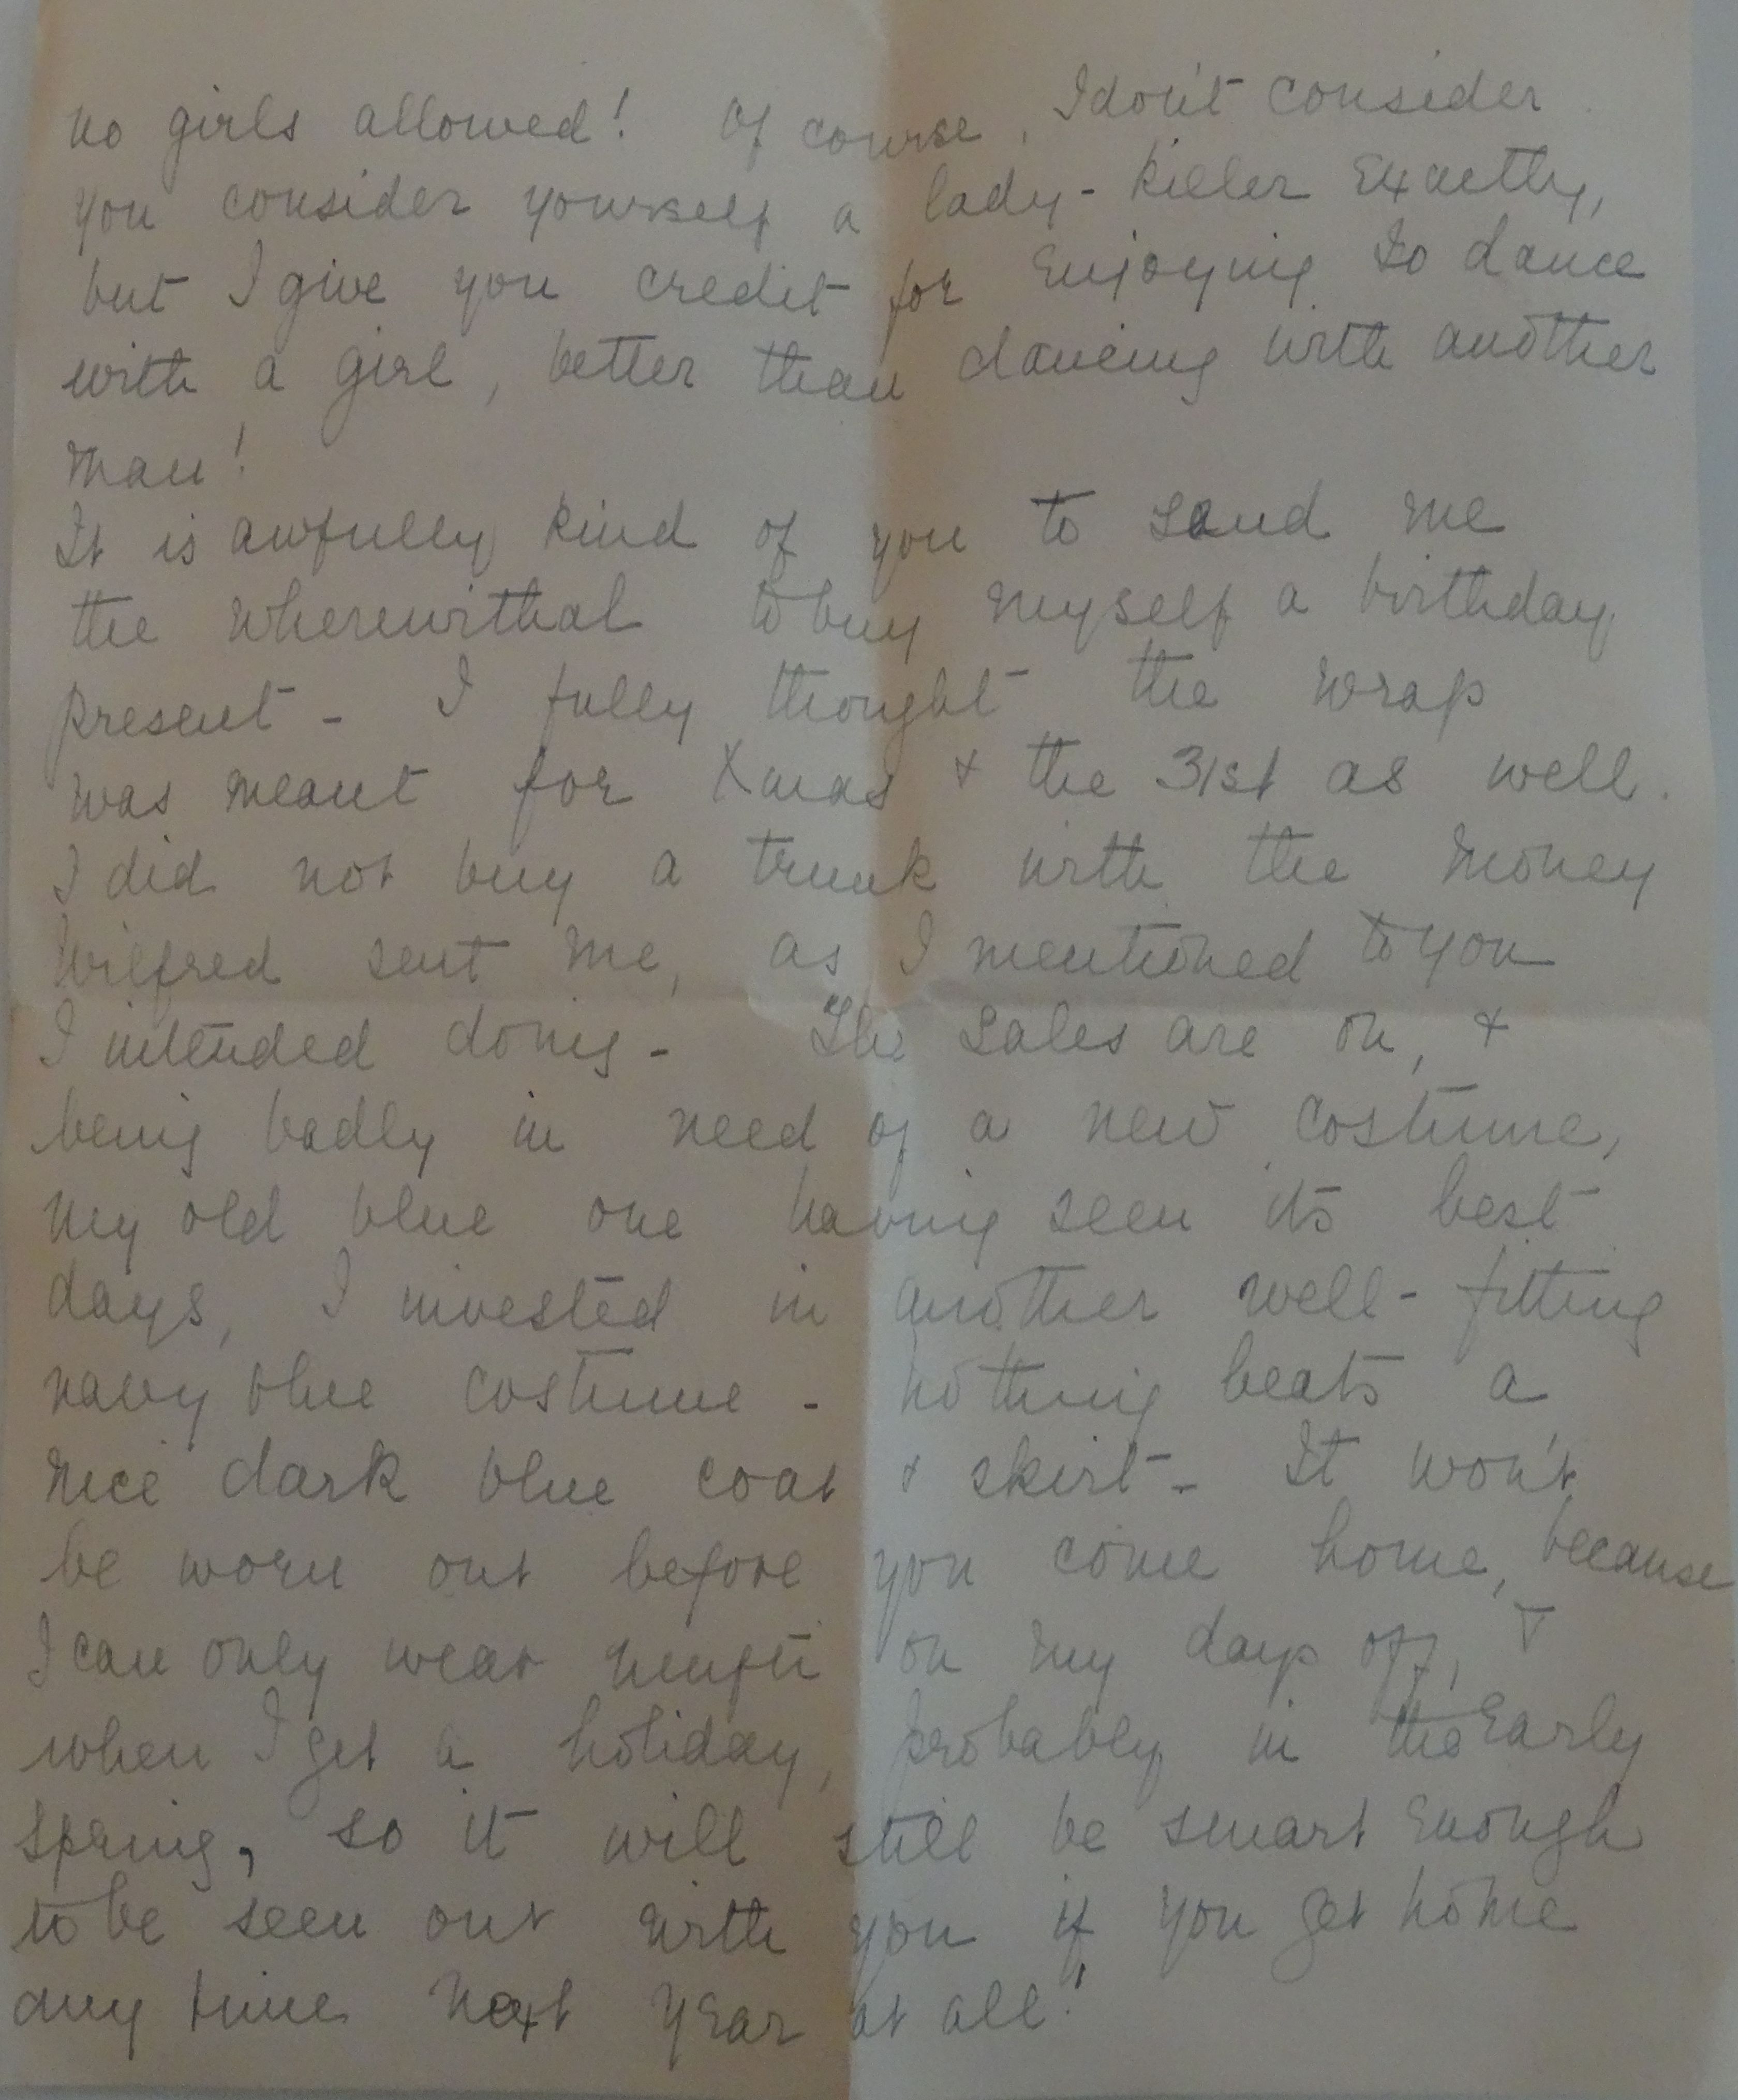 no girls allowed! Of course, I don't consider
you consider yourself a lady-killer exactly,
but I give you credit for enjoying to dance
with a girl, better than dancing with another
man!
It is awfully kind of you to send me
the wherewithal to buy myself a birthday
present - I fully thought the wrap
was meant for Xmas + the 31st as well.
I did not buy a trunk with the money
Wilfred sent me, as I mentioned to you
I intended doing - The sales are on, +
being badly in need of a new costume,
my old blue one having seen its best
days, I invested in another well-fitting
navy blue costume - nothing beats a
nice dark blue coat + skirt - It won't
be worn out before you come home, because
I can only wear mufti on my days off, +
when I get a holiday, probably in the early
spring, so it will still be smart enough
to be seen out with you if you get home
any time next year at all!